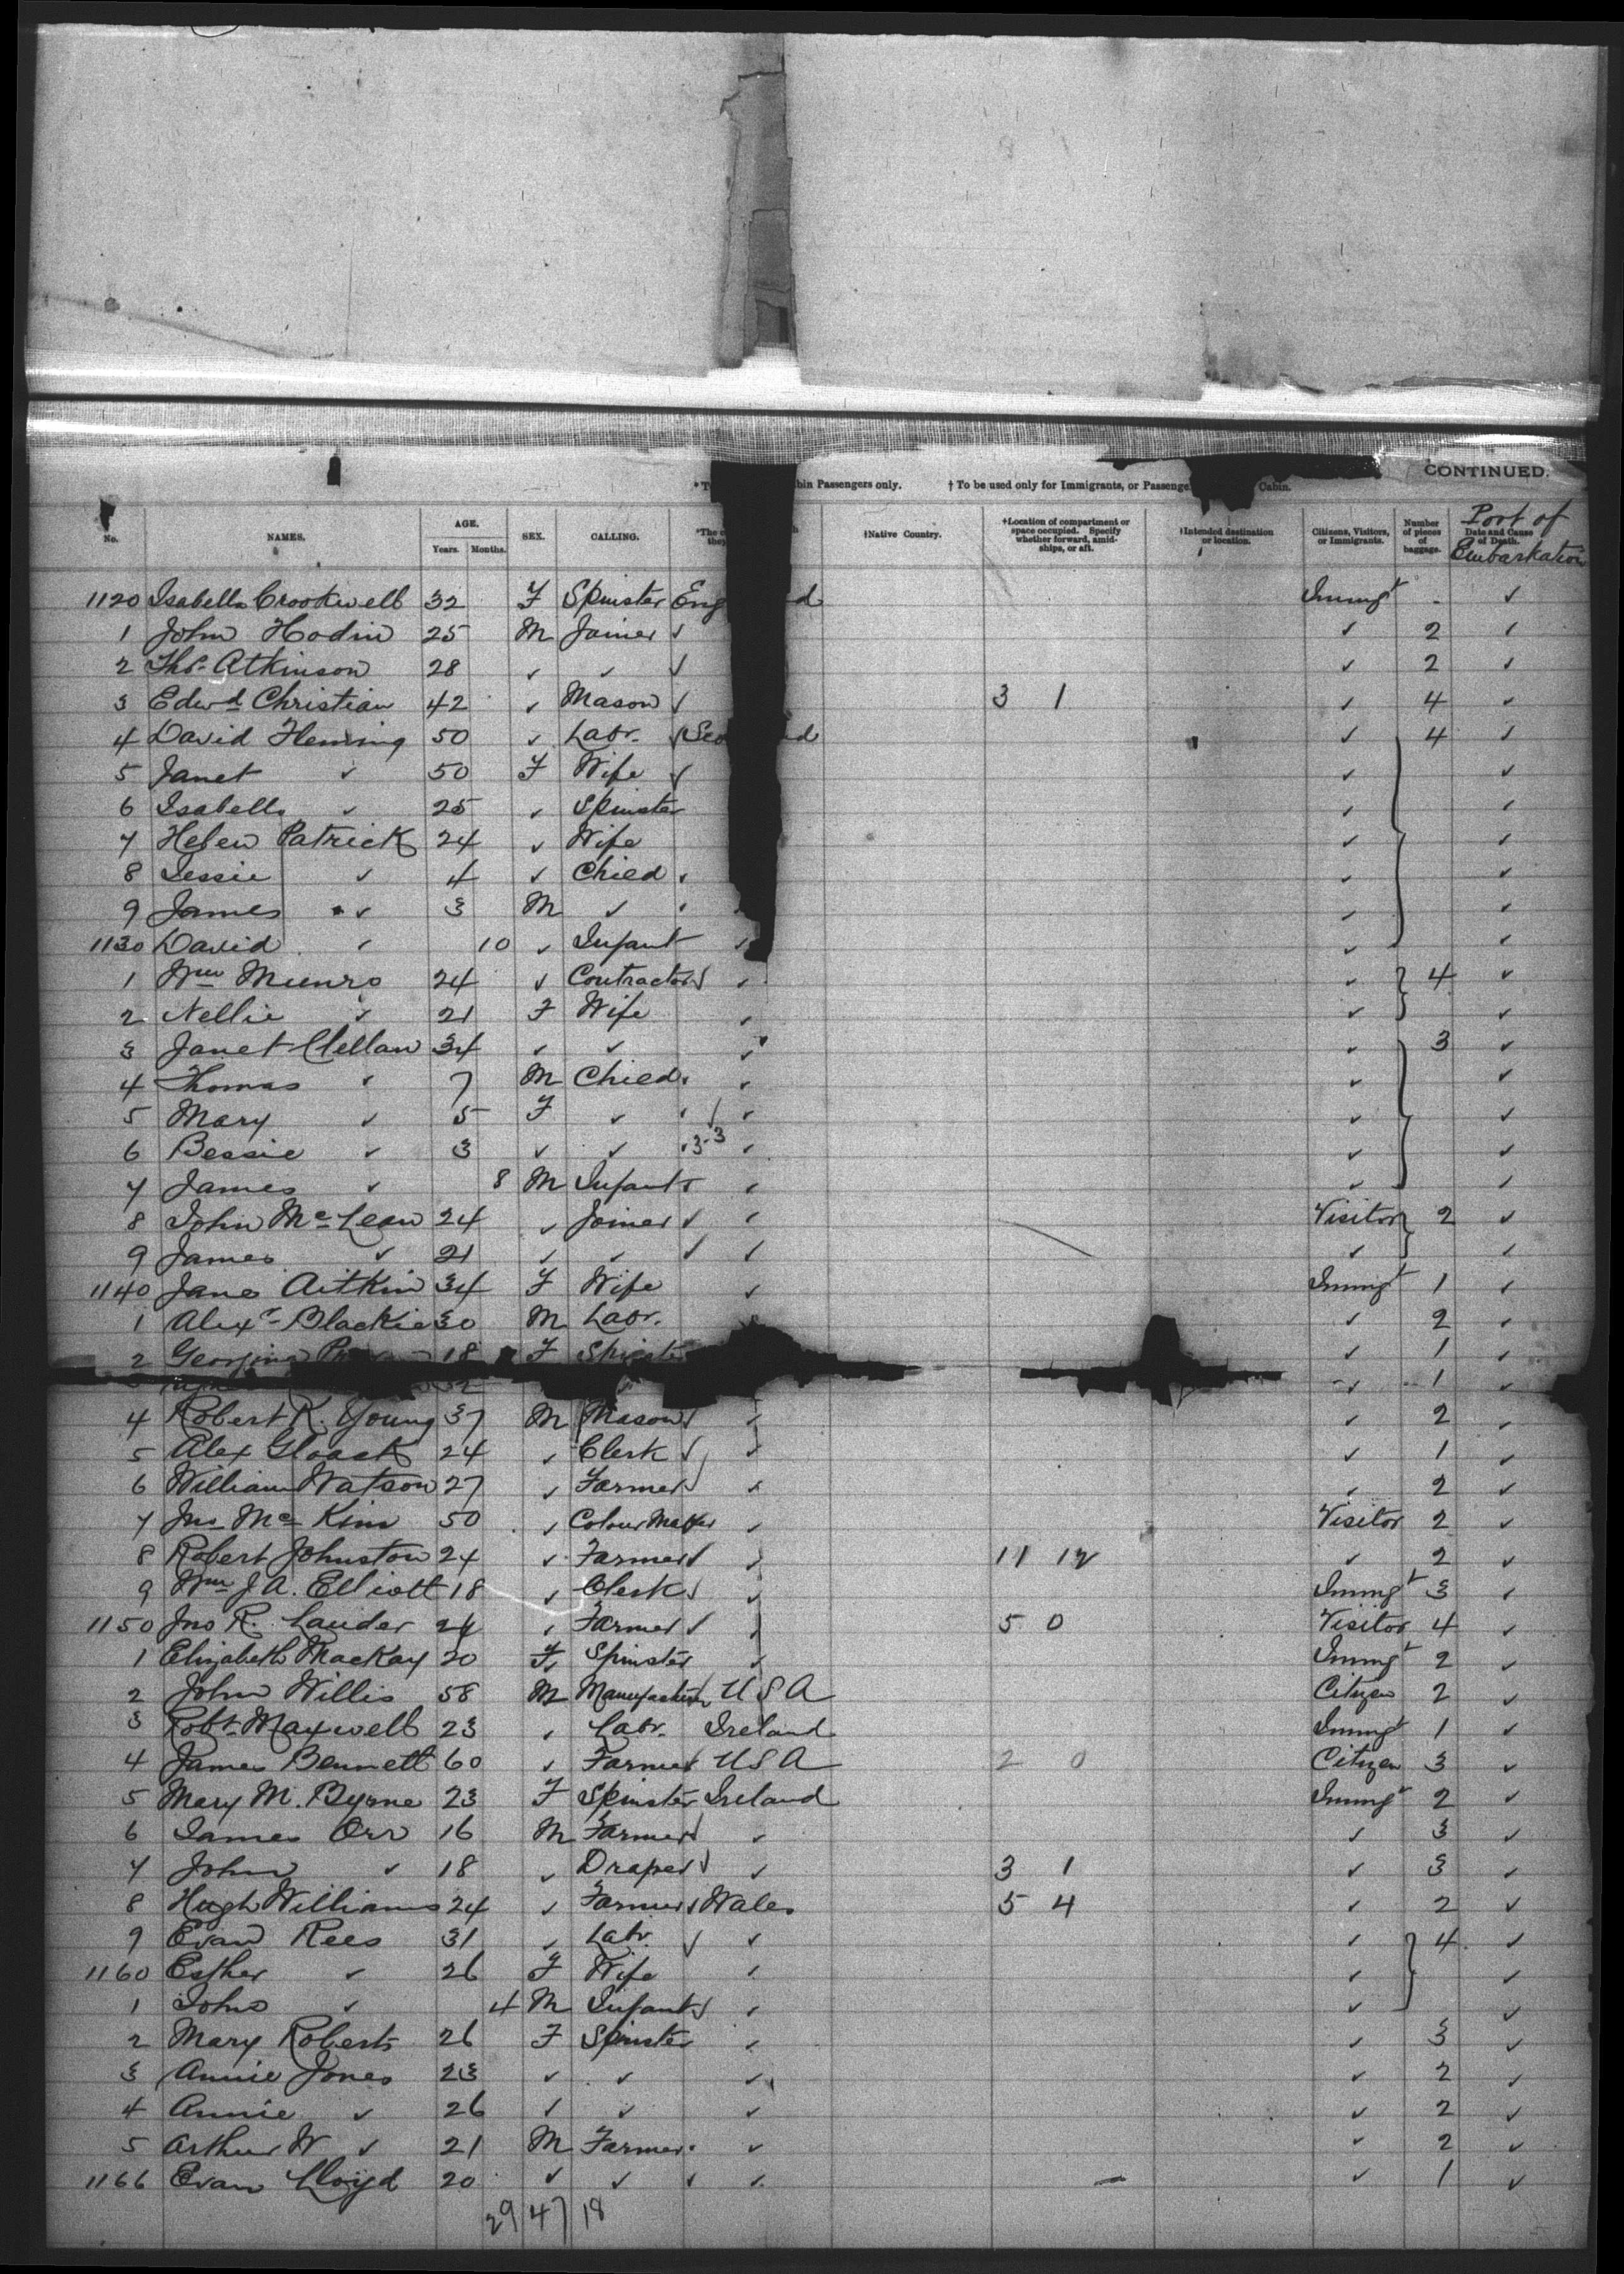 CONTINUED.
bin Passengers only. † To be used only for Immigrants, or Passenge Cabin.
No. NAMES. AGE. Years. Months. SEX. CALLING. *The c they †Native Country. †Location of compartment or space occupied. Specify whether forward, amidships, or aft. †Intended destination or location. Citizens, Visitors, or Immigrants. Number of pieces of baggage. Date and Cause of Death. Port of Embarkation
1120 Isabella Crookwell 32 F Spinster Eng d Immgt - ✓
1 John Hodin 25 M Joiner ✓ ✓ 2 ✓
2 Thos. Atkinson 28 ✓ ✓ ✓ ✓ 2 ✓
3 Edwd Christian 42 ✓ Mason ✓ 3 1 ✓ 4 ✓
4 David Fleming 50 ✓ Labr. ✓ Sco nd ✓ 4 ✓
5 Janet ✓ 50 F Wife ✓ ✓ ✓
6 Isabella ✓ 25 ✓ Spinster ✓ ✓
7 Helen Patrick 24 ✓ Wife ✓ ✓
8 Jessie ✓ 4 ✓ Child ✓ ✓ ✓
9 James ✓ 3 M ✓ ✓ ✓ ✓
1130 David ✓ 10 ✓ Infant ✓ ✓ ✓
1 Wm Munro 24 ✓ Contractor ✓ ✓ ✓ 4 ✓
2 Nellie ✓ 21 F Wife ✓ ✓ ✓
3 Janet Clellan 34 ✓ ✓ ✓ ✓ 3 ✓
4 Thomas ✓ 7 M Child ✓ ✓ ✓ ✓
5 Mary ✓ 5 F ✓ ✓ ✓ ✓ ✓
6 Bessie ✓ 3 ✓ ✓ 3-3 ✓ ✓ ✓
7 James ✓ 8 M Infant ✓ ✓ ✓ ✓
8 John Mc Lean 24 ✓ Joiner ✓ ✓ Visitor 2 ✓
9 James ✓ 21 ✓ ✓ ✓ ✓ ✓ ✓
1140 Jane Aitkin 34 F Wife ✓ Immgt 1 ✓
1 Alexr Blackie 30 M Labr. ✓ 2 ✓
2 Georgina 18 F Spinster ✓ 1 ✓
32 ✓ 1 ✓
4 Robert R. Young 37 M Mason ✓ ✓ ✓ 2 ✓
5 Alex Gloack 24 ✓ Clerk ✓ ✓ ✓ 1 ✓
6 William Watson 27 ✓ Farmer ✓ ✓ ✓ 2 ✓
7 Jno Mc Kim 50 ✓ Colour Maker ✓ Visitor 2 ✓
8 Robert Johnston 24 ✓ Farmer ✓ ✓ 11 12 ✓ 2 ✓
9 Wm J. A. Elliott 18 ✓ Clerk ✓ ✓ Immgt 3 ✓
1150 Jno R. Lauder 24 ✓ Farmer ✓ ✓ 5 0 Visitor 4 ✓
1 Elizabeth MacKay 20 F Spinster ✓ Immgt 2 ✓
2 John Willis 58 M Manufacturer USA Citizen 2 ✓
3 Robt Maxwell 23 ✓ Labr. Ireland Immgt 1 ✓
4 James Bennett 60 ✓ Farmer USA 2 0 Citizen 3 ✓
5 Mary M. Byrne 23 F Spinster Ireland Immgt 2 ✓
6 James Orr 16 M Farmer ✓ ✓ ✓ 3 ✓
7 John ✓ 18 ✓ Draper ✓ ✓ 3 1 ✓ 3 ✓
8 Hugh Williams 24 ✓ Farmer ✓ Wales 5 4 ✓ 2 ✓
9 Evan Rees 31 ✓ Labr. ✓ ✓ ✓ 4 ✓
1160 Esther ✓ 26 F Wife ✓ ✓ ✓
1 John ✓ 4 M Infant ✓ ✓ ✓ ✓
2 Mary Roberts 26 F Spinster ✓ ✓ 3 ✓
3 Annie Jones 23 ✓ ✓ ✓ ✓ 2 ✓
4 Annie ✓ 26 ✓ ✓ ✓ ✓ 2 ✓
5 Arthur W ✓ 21 M Farmer ✓ ✓ ✓ 2 ✓
1166 Evan Lloyd 20 ✓ ✓ ✓ ✓ ✓ 1 ✓
29 47 18